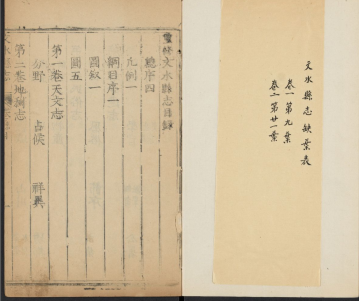 文水縣志缺葉表
卷一第九葉
卷二第廿一葉
文水縣志目錄
總序四
凡例一
綱目序一
圖敘一
圖五
第一卷天文志
分野 占候 祥異
第二卷地利志